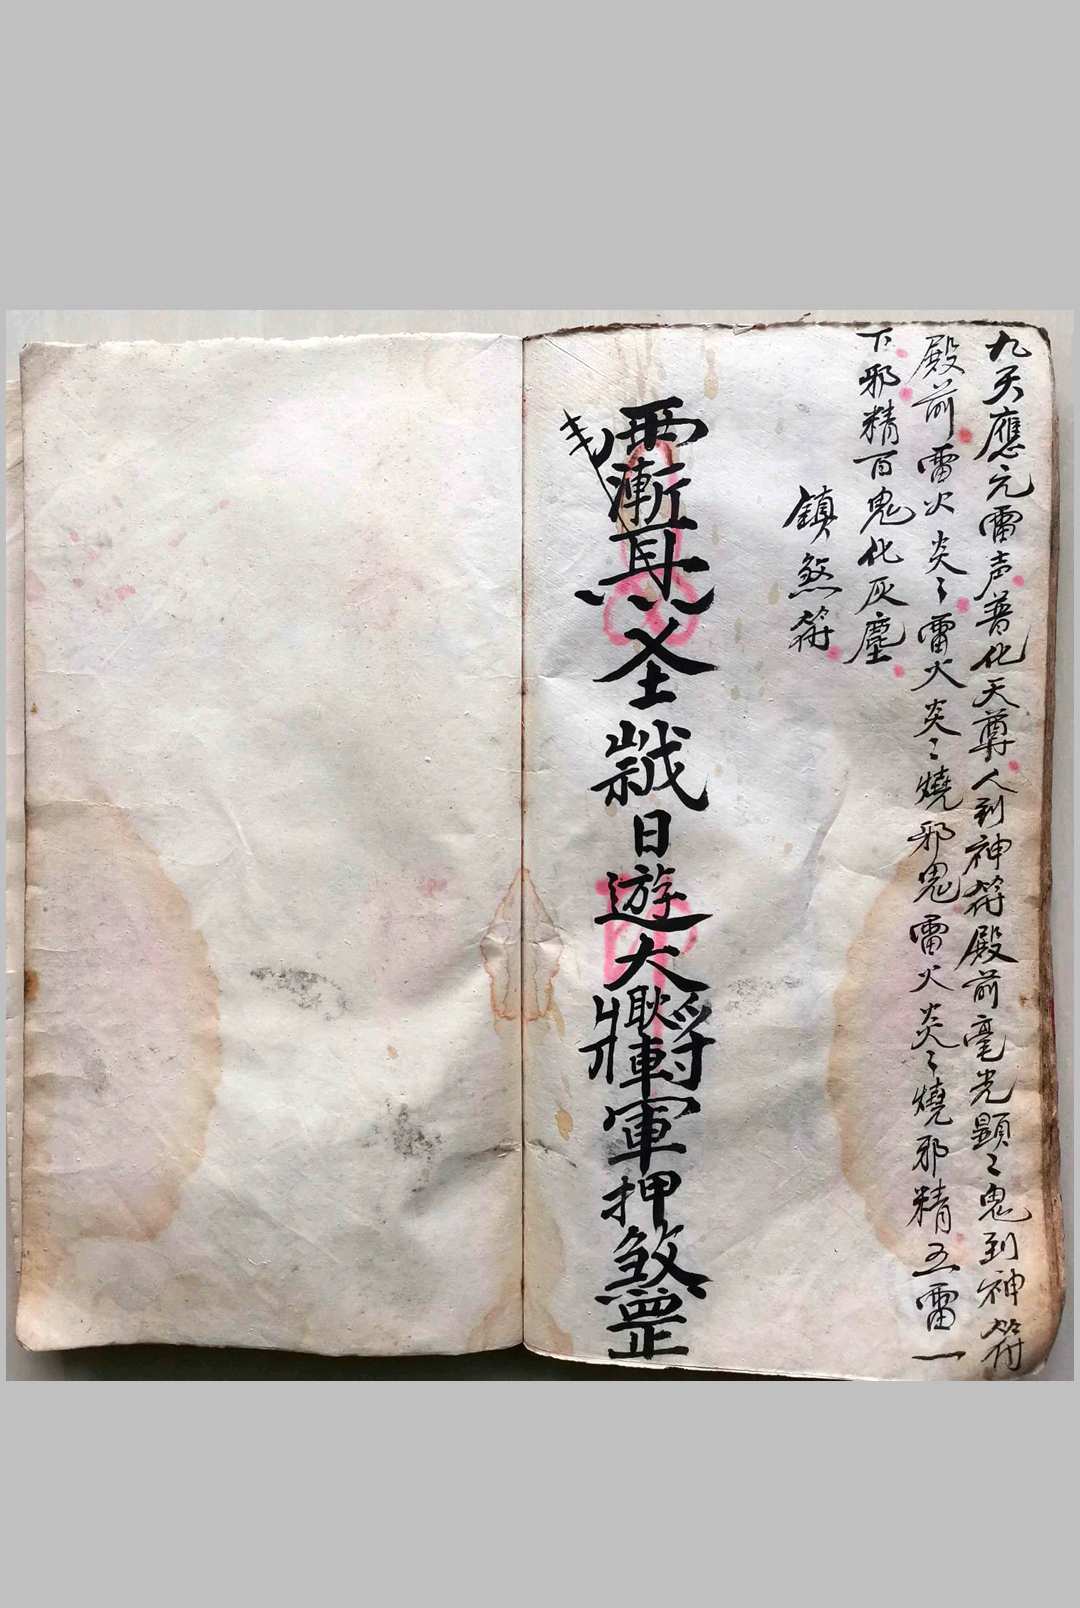 九天應元雷声普化天尊人到神符殿前毫光顯〻鬼到神符
殿前雷火炎〻雷火炎〻燒邪鬼雷火炎〻燒邪精五雷一
下邪精百鬼化灰塵
鎮煞符
聖
日遊大將軍押煞罡